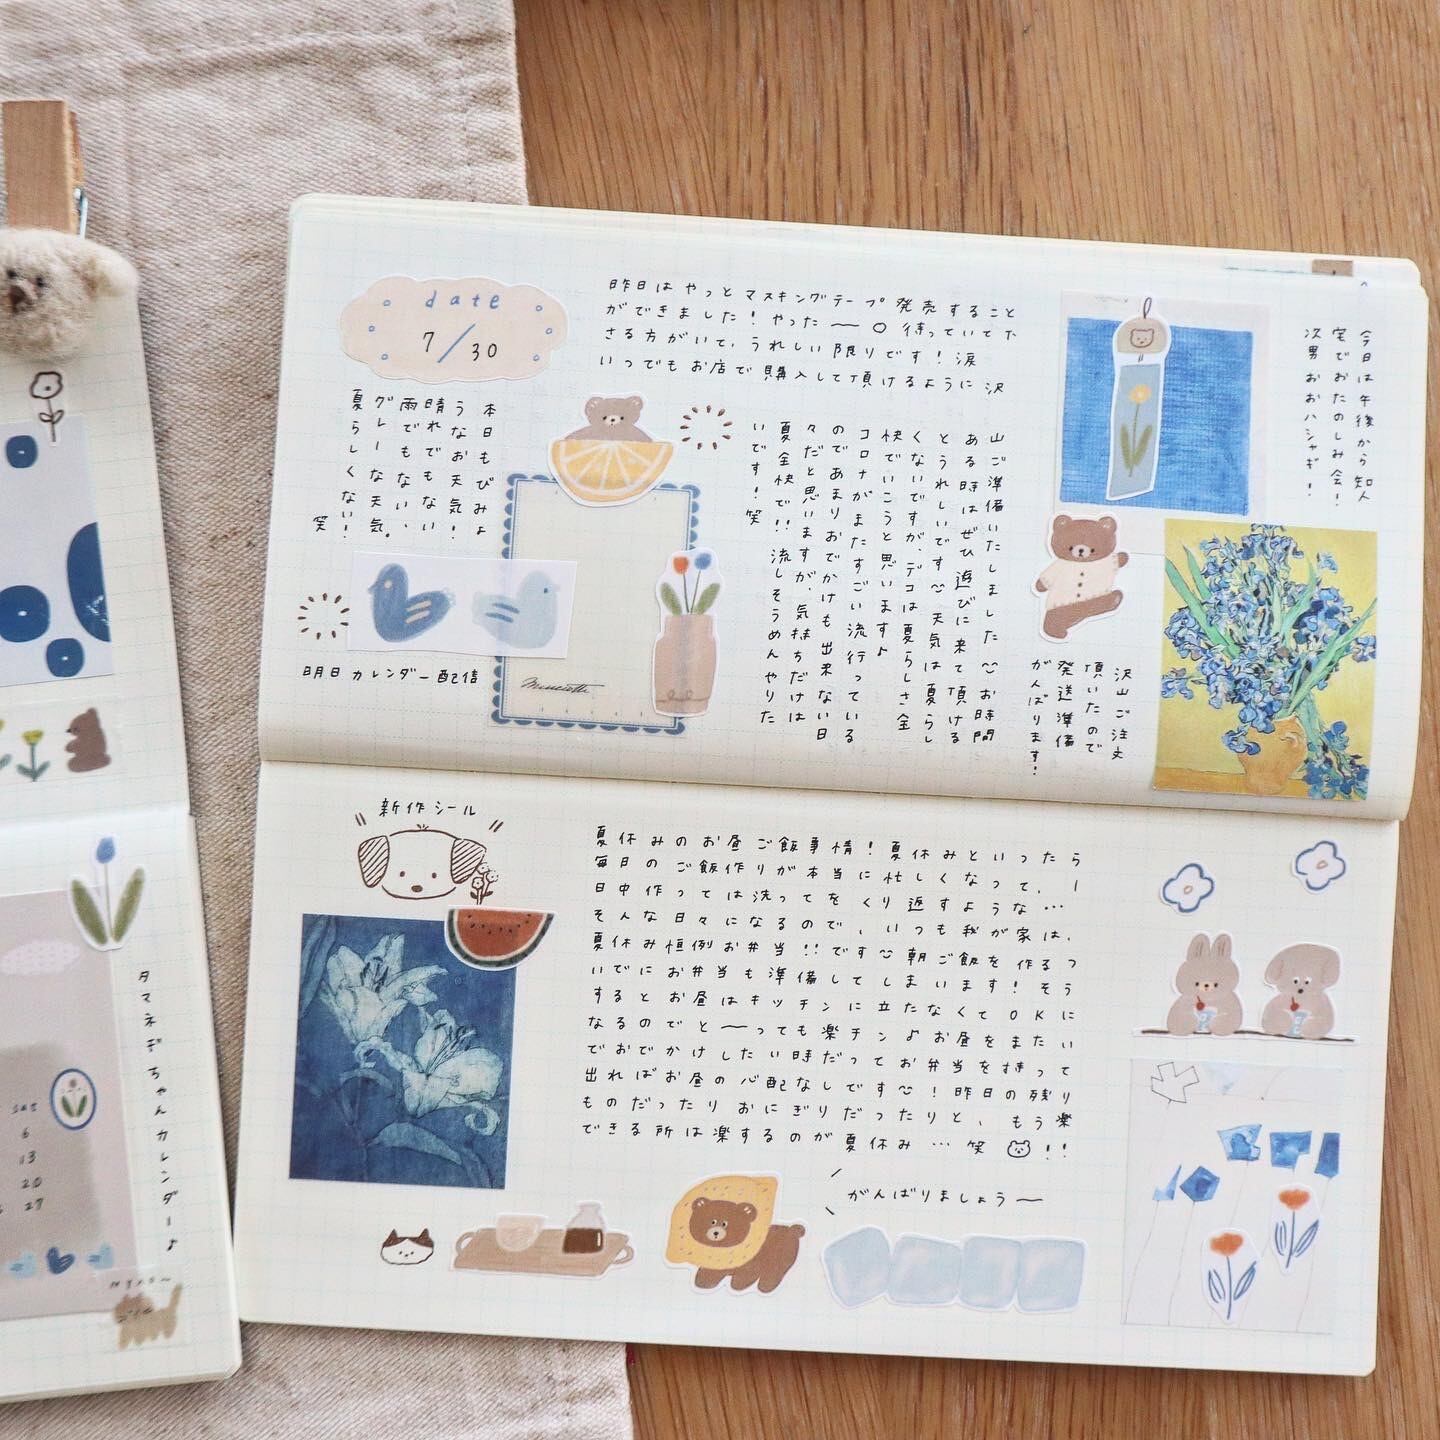 date
7/30
昨日はやっとマスキングテープ発売すること
ができました！やったー〇 待っていて下
さる方がいて、うれしい限りです！涙
いつでもお店で購入して頂けるように沢
山ご準備いたしました お時間
ある時はぜひ遊びに来て頂ける
とうれしいです 天気は夏らし
くないですが、デコは夏らしさ全
快でいこうと思いますよ
コロナがまたすごい流行っている
のであまりおでかけも出来ない日
々だと思いますが、気持ちだけは
夏全快で!! 流しそうめんやりた
いです！笑
本日もびみょ
うなお天気！
晴れでもない
雨でもない、
グレーな天気。
夏らしくない！
笑
明日カレンダー配信
今日は午後から知人
宅でおたのしみ会！
次男おおハシャギ！
沢山ご注文
頂いたので
発送準備
がんばります！
新作シール
夏休みのお昼ご飯事情！夏休みといったら
毎日のご飯作りが本当に忙しくなって、一
日中作っては洗ってをくり返すような…
そんな日々になるので、いつも我が家は、
夏休み恒例お弁当!!です 朝ご飯を作るつ
いでにお弁当も準備してしまいます！そう
するとお昼はキッチンに立たなくてOKに
なるのでとーっても楽チン♪お昼をまたい
でおでかけしたい時だってお弁当を持って
出ればお昼の心配なしです！昨日の残り
ものだったりおにぎりだったりと、もう楽
できる所は楽するのが夏休み…笑!!
がんばりましょうー
タマネギちゃんカレンダー♪
sat
6
13
20
27